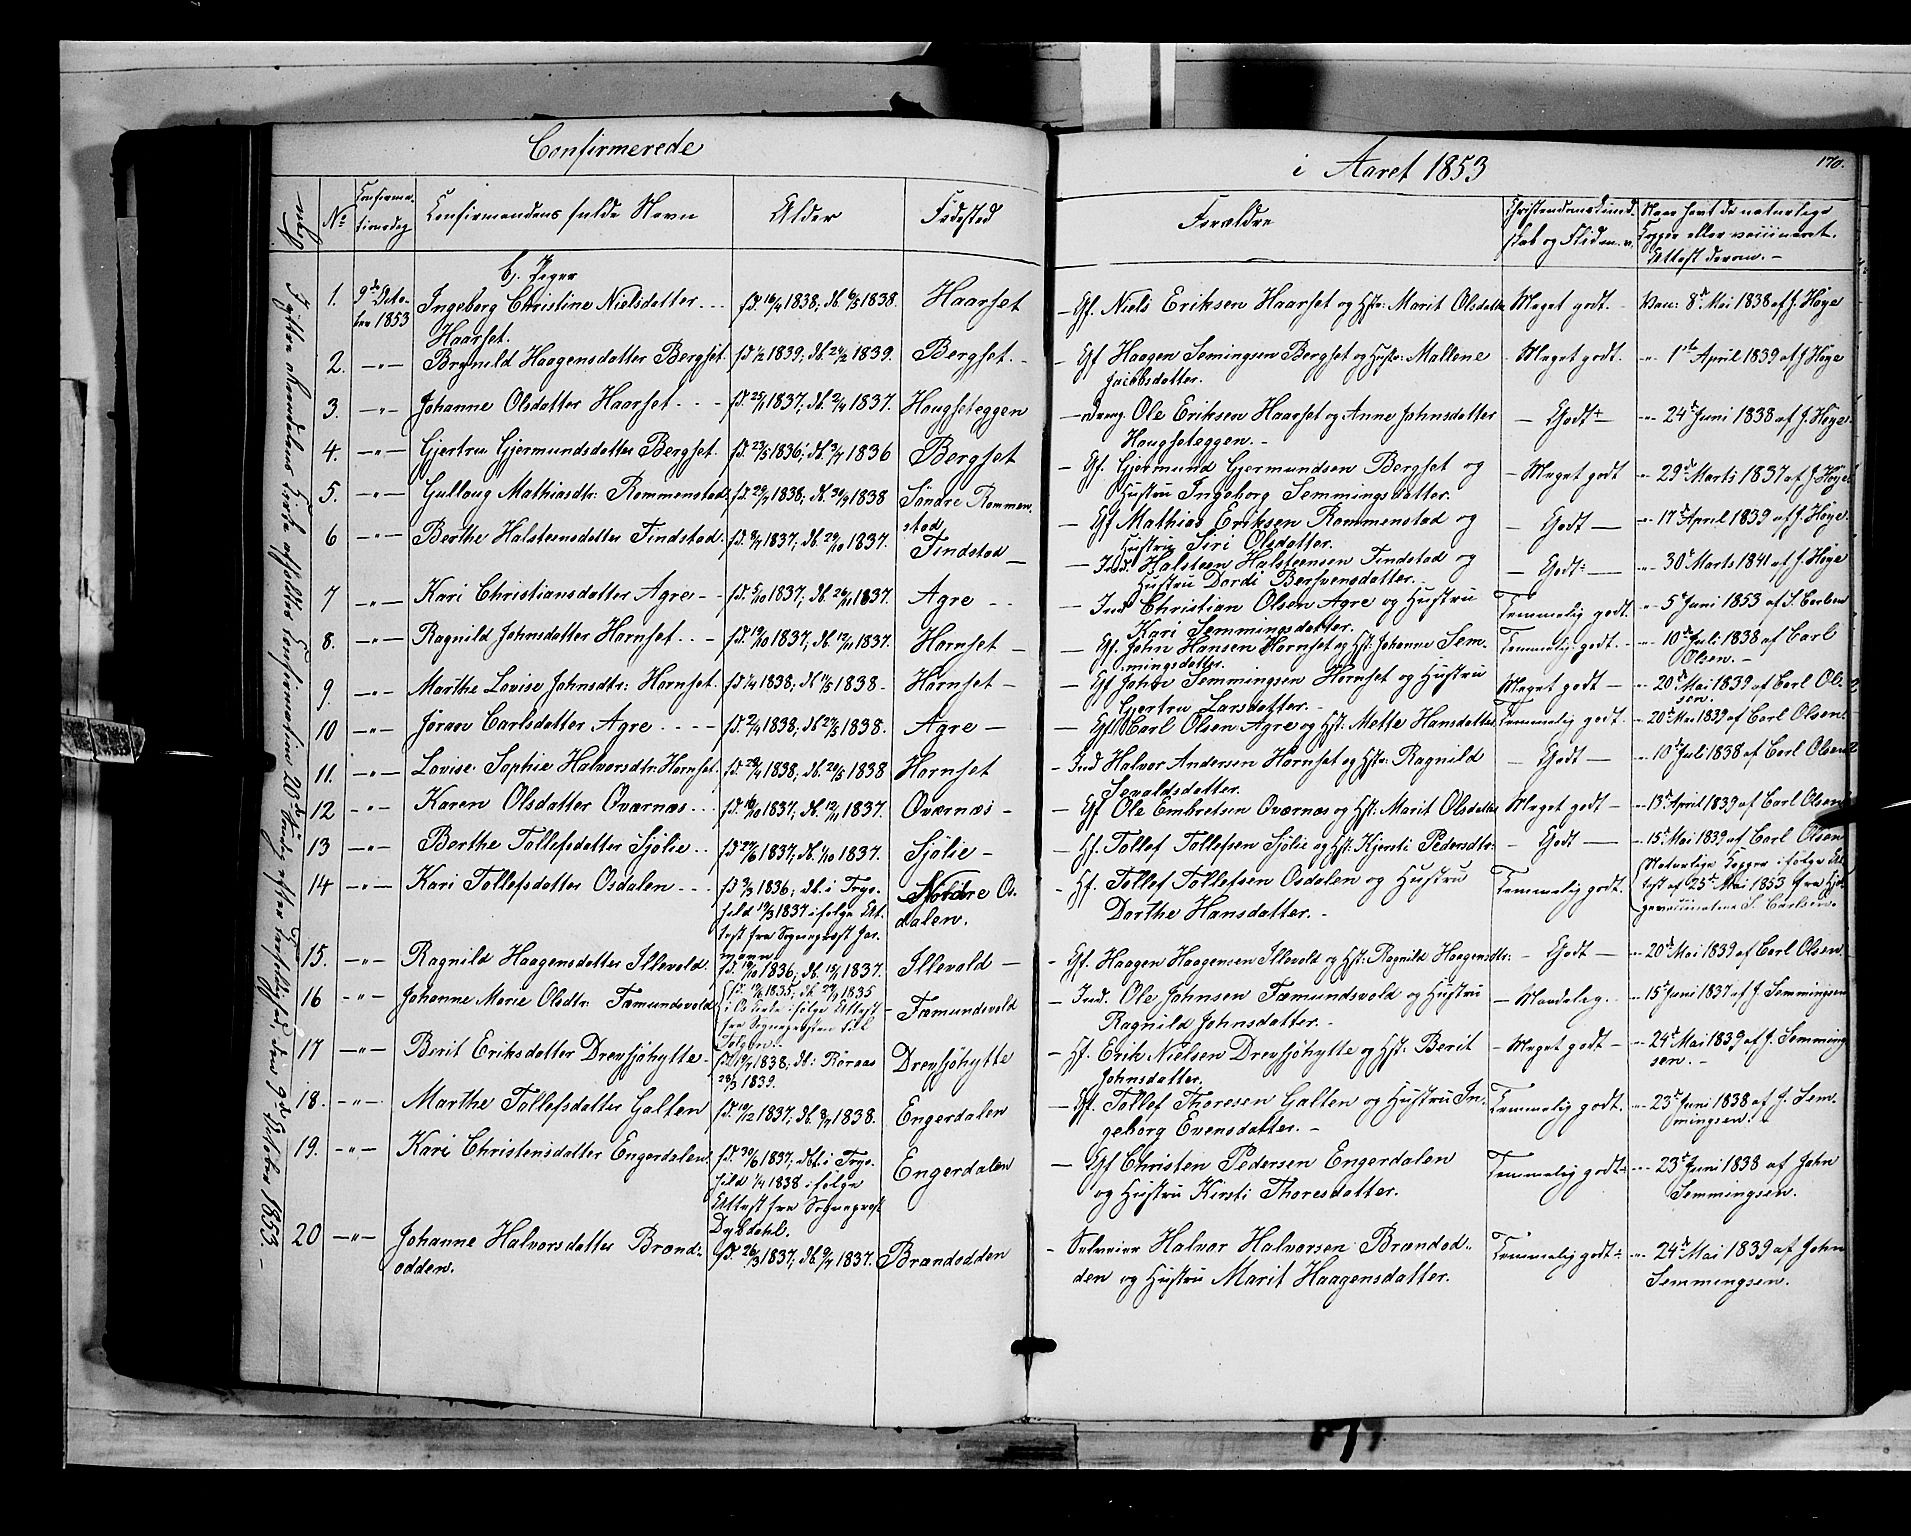 Confirmerede
i Aaret 1853
170.
No
Confirma-
tionsdag
Confirmandens fulde Navn
Alder
Fødested
Forældre
Christendomskund-
skab og Fliden. v.
Naar havt de naturlige
Kopper eller vaccineret.
Attest derom. -
b, Piger
1. 9de Octo-
ber 1853
Ingeborg Christine Nielsdatter - -
Haarset.
fd. 16/4 1838; db. 6/5 1838.
Haarset
- Gf. Niels Eriksen Haarset og Hstr: Marit Olsdatter
Meget godt -
Vac: 8de Mai 1838 af J. Høye
2. -"-
Brynild Haagensdatter Bergset.
fd. 1/2 1839; db. 24/2 1839.
Bergset. -
- Gf Haagen Semingsen Bergset og Hustr: Mallene
Jacobsdatter.
- Meget godt.
-"- 1ste April 1839 af J. Høye
3. -"-
Johanne Olsdatter Haarset. - -
1837; db. 1837.
Haugseteggen
- Ole Eriksen Haarset og Anne Johnsdatter
Haugseteggen. -
- Godt -
-"- 24de Juni 1838 af J. Høye.
4. -"-
Gjertru Gjermundsdatter Bergset.
fd. 23/5 1836; db. 1836
Bergset
- Gf. Gjermund Gjermundsen Bergset og
Hustru Ingeborg Semmingsdatter.
- Meget godt
-"- 29de Marts 1837 af J. Høye
5. -"-
Gullaug Mathiasdtr: Rommenstad
1838; db. 1838
Søndre Rommen-
stad
- Gf Mathias Eriksen Rommenstad og
Hustru Siri Olsdatter.
- Godt -
-"- 17de April 1839 af J. Høye.
6 -"-
Berthe Halsteensdatter Tindstad.
1837; db. 29/10 1837.
Tindstad -
- Ind. Halsteen Halsteensen Tindstad og
Hustru Dordi Bersvensdatter.
- Godt: -
-"- 30de Marts 1841 af J. Høye
7 -"-
Kari Christiansdatter Agre - -
fd. 5/10 1837; db. 26/11 1837.
Agre - -
- Ind Christian Olsen Agre og Hustru
Kari Semmingsdatter.
Temmelig godt.
-"- 5te Juni 1853 af S. Carlsen
8. -"-
Ragnild Johnsdatter Hornset. - -
fd. 19/10 1837; db. 12/11 1837.
Hornset -
- Gf. John Hansen Hornset og Hst: Johanne Sem-
mingsdatter.
Temmelig godt. -
-"- 10de Juli 1838 af Carl
Olsen. -
9 -"-
Marthe Lovise Johnsdtr: Hornset.
fd. 1/4 1838; db. 1838 -
Hornset -
- Gf John Semmingsen Hornset og Hustru
Gjertru Larsdatter. -
Meget godt -
-"- 20de Mai 1839 af Carl Ol-
sen.
10 -"-
Joraav Carlsdatter Agre - - - -
fd. 2/4 1838; db. 27/5 1838.
Agre -
- Gf Carl Olsen Agre og Hst: Mette Hansdatter
Temmelig godt
-"- 20de Mai 1839 af Carl Olsen.
11. -"-
Lovise Sophie Halvorsdtr: Hornset.
fd. 28/4 1838; db. 24/5 1838
Hornset
- Ind Halvor Andersen Hornset og Hstr: Ragnild
Sevaldsdatter.
- Godt -
-"- 10de Juli 1838 af Carl Olsen
12 -"-
Karen Olsdatter Qværnæs - -
fd. 16/10 1837; db. 12/11 1837.
Qværnæs -
- Gf Ole Embretsen Qværnæs og Hst: Marit Olsdatter
Meget godt -
-"- 13de April 1839 af Carl Olsen
13 -"-
Berthe Tollefsdatter Sjølie - -
fd 27/6 1837; db. 1/10 1837.
Sjølie -
- Hf. Tollef Tollefsen Sjølie og Hst: Kjersti Pedersdtr:
- Godt -
-"- 15de Mai 1839 af Carl Olsen
14 -"-
Kari Tollefsdatter Osdalen - - -
fd 1836; db. i Try-
sild 19/3 1837 ifølge At-
test fra Sognepræst Jar-
mann
Nordre Os-
dalen.
- Hf. Tollef Tollefsen Osdalen og Hustru
Dorthe Hansdatter. -
Temmelig godt.
Naturlige Kopper ifølge At-
test af 25de Mai 1853 fra Hjel-
pevaccinateur S. Carlsen.
15. -"-
Ragnild Haagensdatter Illevold.
1836; db. 1837.
Illevold -
- Gf. Haagen Haagensen Illevold og Hst: Ragnild Haagensdtr:
- Godt -
-"- 20de Mai 1839 af Carl Olsen.
16 -"-
Johanne Marie Olsdtr: Fæmundsvold
1835; db. 1835
ifølge Attest
fra Sognepræsten
Fæmundsvold
- Ind. Ole Johnsen Fæmundsvold og Hustru
Ragnild Johnsdatter. -
- Maadelig.
-"- 15de Juni 1837 af J. Semmingsen
17 -"-
Berit Eriksdatter Drevsjøhytte -
1838; db: Røraas
1839.
Drevsjøhytte
- Hf. Erik Nielsen Drevsjøhytte og Hst: Berit
Johnsdatter.
- Meget godt -
-"- 24de Mai 1839 af J. Semming-
sen. -
18. -"-
Marthe Tollefsdatter Galten
fd. 19/12 1837; db. 1838.
Engerdalen
- Gf. Tollef Thoresen Galten og Hustru In-
geborg Evensdatter. -
Temmelig godt.
-"- 23de Juni 1838 af J. Sem-
mingsen.
19. -"-
Kari Christensdatter Engerdalen.
fd. 30/6 1837; db. i Try-
sild 1/4 1838 ifølge
Attest fra Sognepræst
Dybdahl.
Engerdalen
- Gf Christen Pedersen Engerdalen
og Hustru Kirsti Thoresdatter.
Temmelig godt
-"- 23de Juni 1838 af John
Semmingsen.
20 -"-
Johanne Halvorsdatter Brænd-
odden.
fd. 26/3 1837; db. 1837.
Brændodden
- Selveier Halvor Halvorsen Brændod-
den og Hustru Marit Haagensdatter.
Temmelig godt
-"- 24de Mai 1839 af John
Semmingsen.
Kirke afholdtes Confirmation 20de Søndag efter Trefoldighed, den 9de October 1853. -